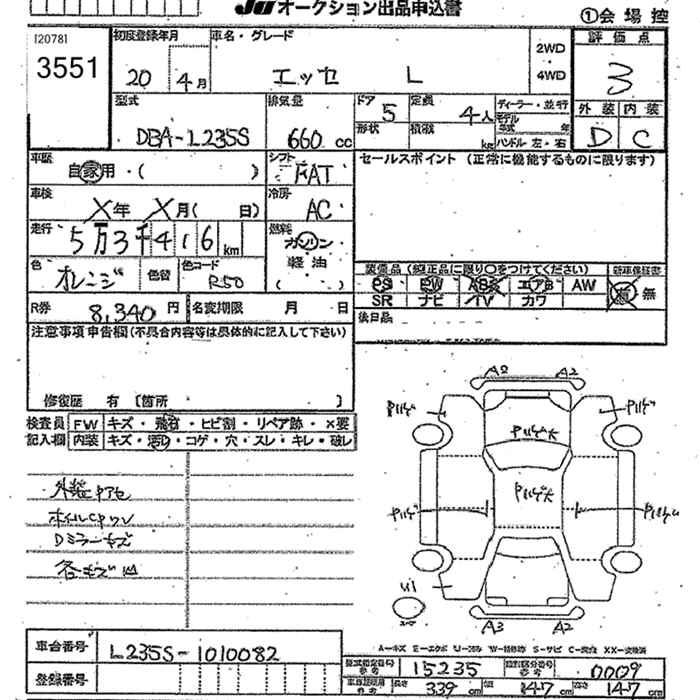 JU オークション出品申込書
①会場控
120781
3551
初度登録年月
20 4月
車名・グレード
エッセ L
2WD
4WD
評価点
3
型式
DBA-L235S
排気量
660 cc
ドア 5
定員 4人
形状
積載 kg
ディーラー・並行
モデル
年式 年
ハンドル 左・右
外装 内装
D C
車歴
自家用・( )
シフト
FAT
セールスポイント (正常に機能するものに限ります)
車検
X年 X月( 日)
冷房
AC
走行
5万3千416km
燃料
ガソリン・
軽油
( )
色
オレンジ
色替
色コード
R50
装備品(純正品に限り○をつけてください)
新車保証書
PS PW ABS エアB AW
有・無
SR ナビ TV カワ
R券
8,340円
名変期限 月 日
後日品
注意事項申告欄(不具合内容等は具体的に記入して下さい)
修復歴 有〔箇所 〕
検査員
記入欄
FW キズ・飛石・ヒビ割・リペア跡・×要
内装 キズ・汚れ・コゲ・穴・スレ・キレ・破レ
A2 A2
Pハゲ Pハゲ
Pハゲ大
Pハゲ大
Pハゲ Pハゲ
A3 A2
外装
ホイル
Dミラーキズ
各キズ凹
A-キズ E-エクボ U-凹み W-補修跡 S-サビ C-腐食 XX-交換済
車台番号
L235S-1010082
登録番号
型式指定番号
参考
15235
類別区分番号
参考
0009
車検証使用
参考
長さ 339 cm 幅 147 cm 高さ 147 cm